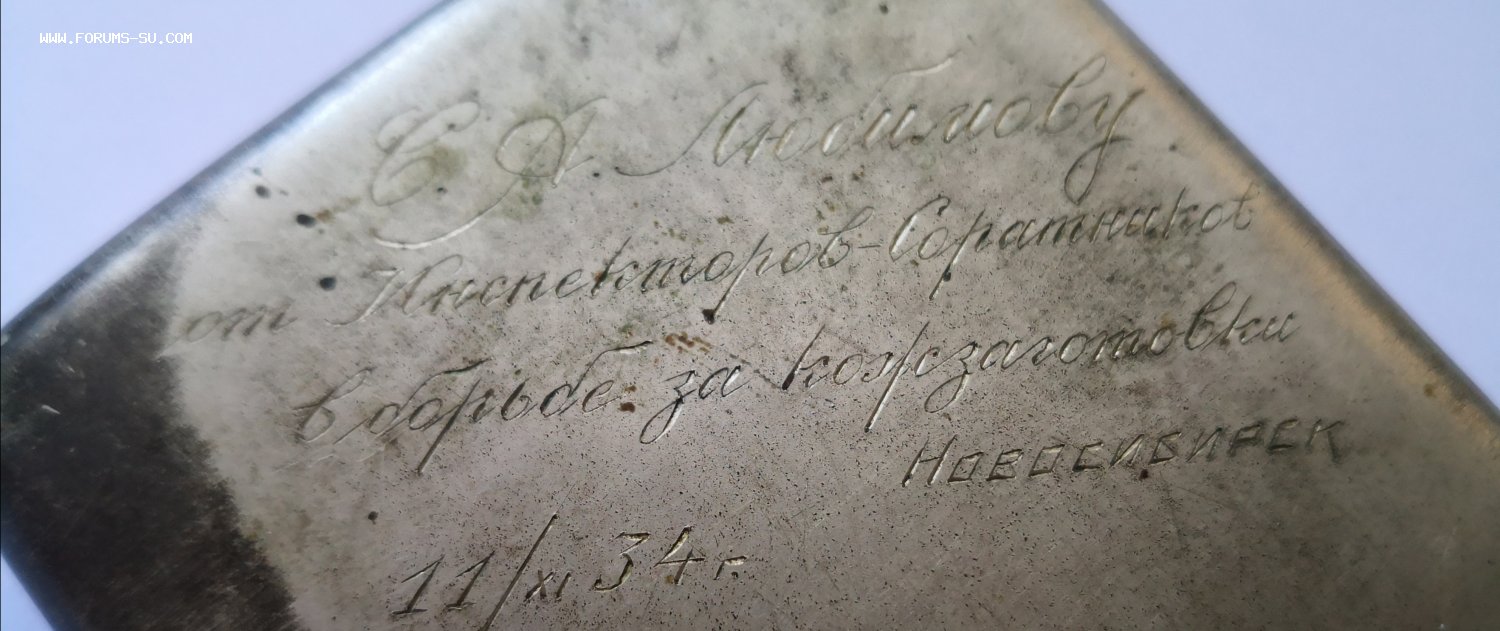 WWW.FORUMS-SU.COM
С А Любимову
от Инспекторов-Соратников
в борьбе за кожзаготовки
НОВОСИБИРСК
11/XI 34 г.